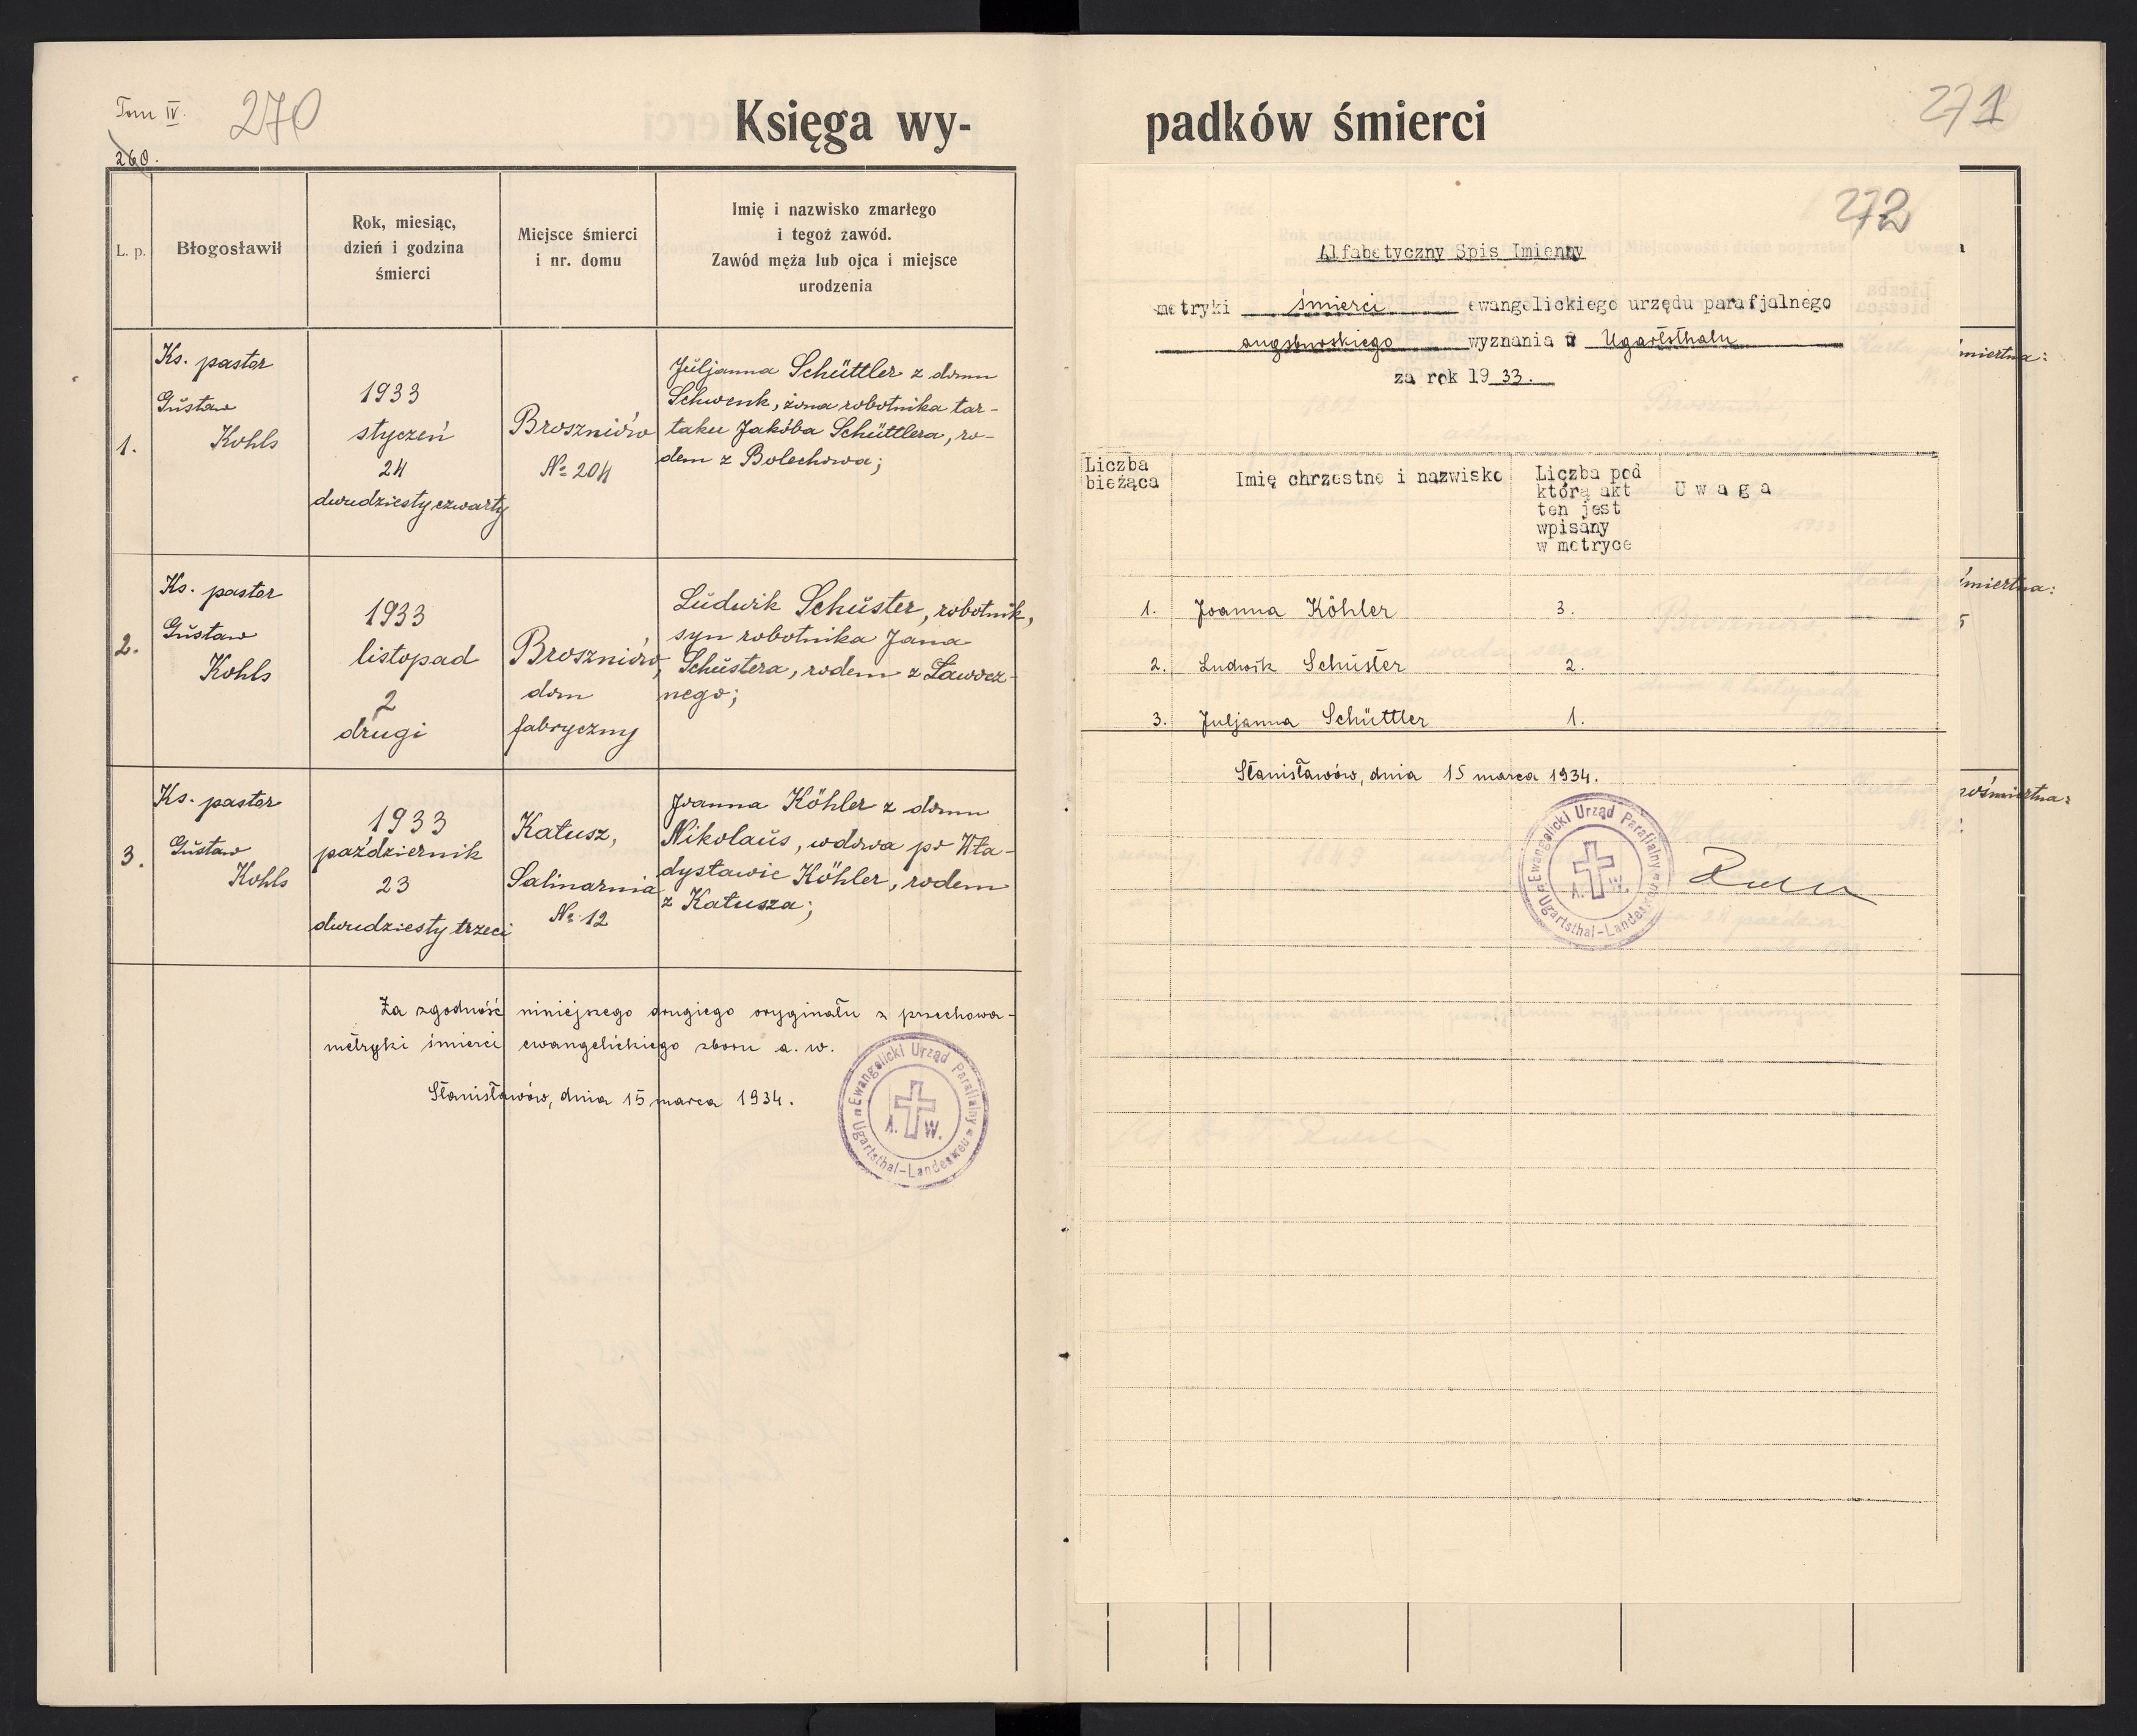 Tom IV.
270
260.
Księga wy-
L. p.
Błogosławił
Rok, miesiąc,
dzień i godzina
śmierci
Miejsce śmierci
i nr. domu
Imię i nazwisko zmarłego
i tegoż zawód.
Zawód męża lub ojca i miejsce
urodzenia
1.
Ks. pastor
Gustaw
Kohls
1933
styczeń
24
dwudziesty czwarty
Broszniów
№ 204
Juljanna Schüttler z domu
Schwenk, żona robotnika tar-
taku Jakóba Schüttlera, ro-
dem z Bolechowa;
2.
Ks. pastor
Gustaw
Kohls
1933
listopad
2
drugi
Broszniów,
dom
fabryczny
Ludwik Schuster, robotnik,
syn robotnika Jana
Schustera, rodem z Ławocz-
nego;
3.
Ks. pastor
Gustaw
Kohls
1933
październik
23
dwudziesty trzeci
Kałusz,
Salinarnia
№ 12
Joanna Köhler z domu
Nikolaus, wdowa po Wła-
dysławie Köhler, rodem
z Kałusza;
Za zgodność niniejszego drugiego oryginału z przechowa-
metryki śmierci ewangelickiego zboru a. w.
Stanisławów, dnia 15 marca 1934.
Ewangelicki Urząd Parafialny
Ugartsthal-Landestreu
A. W.
padków śmierci
271
272
Alfabetyczny Spis Imienny
metryki śmierci ewangelickiego urzędu parafjalnego
augsburskiego wyznania w Ugartsthalu
za rok 1933.
Liczba
bieżąca
Imię chrzestne i nazwisko
Liczba pod
którą akt
ten jest
wpisany
w metryce
Uwaga
1. Joanna Köhler 3.
2. Ludwik Schuster 2.
3. Juljanna Schüttler 1.
Stanisławów, dnia 15 marca 1934.
Ewangelicki Urząd Parafialny
Ugartsthal-Landestreu
A. W.
miertna:
śmiertna:
5
pośmiertna: